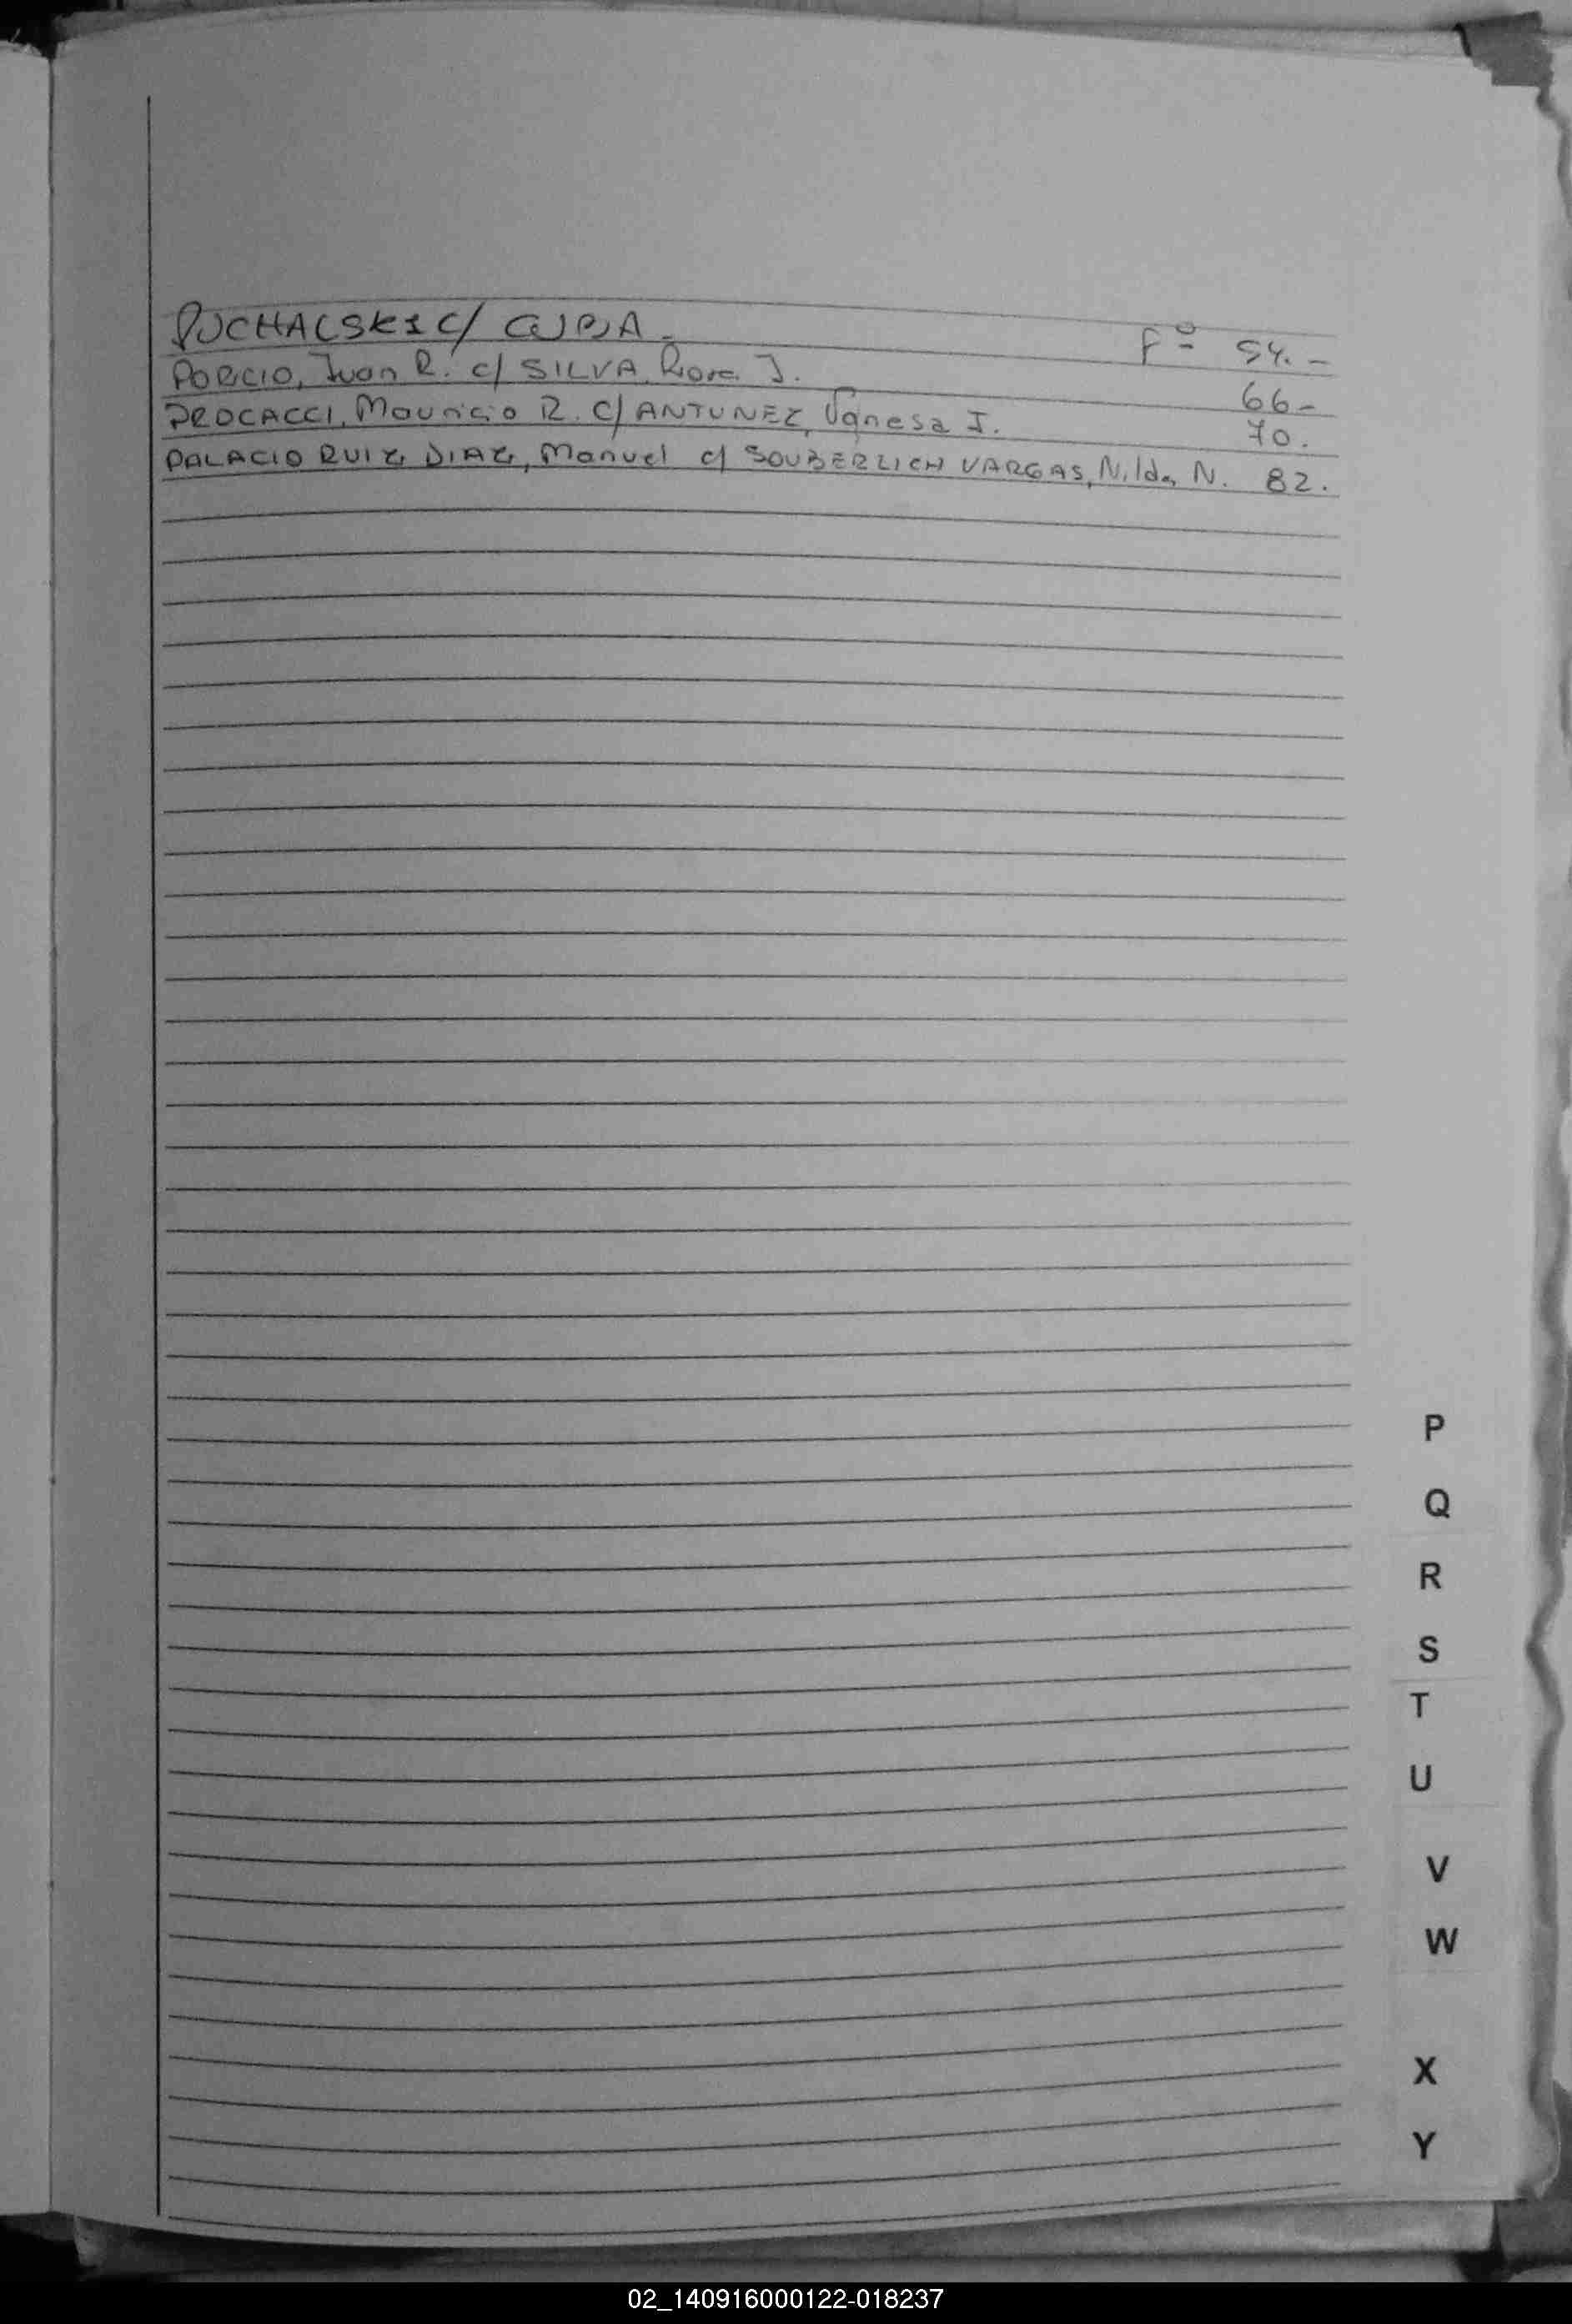 PUCHALSKI C/ CUBA - Fº 54.-
PORCIO, Juan R. c/ SILVA, Rosa J. 66-
PROCACCI, Mauricio R. C/ ANTUNEZ, Vanesa I. 70.
PALACIO RUIZ DIAZ, Manuel c/ SOUBERLICH VARGAS, Nilda N. 82.
P
Q
R
S
T
U
V
W
X
Y
02_140916000122-018237